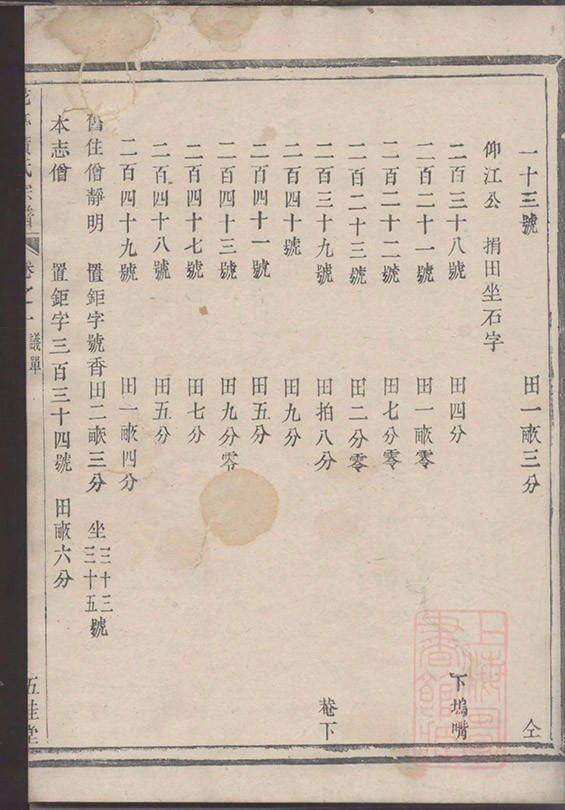 一十三號 田一畝三分 仝
仰江公 捐田坐石字
二百三十八號 田四分 下塢嘴
二百二十一號 田一畝零
二百二十二號 田七分零
二百二十三號 田二分零
二百三十九號 田拍八分 菴下
二百四十號 田九分
二百四十一號 田五分
二百四十三號 田九分零
二百四十七號 田七分
二百四十八號 田五分
二百四十九號 田一畝四分
舊住僧靜明 置鉅字號香田二畝三分 坐三十三 三十五號
本志僧 置鉅字三百三十四號 田畝六分
氏宗譜 卷之一 議單 五桂堂
上海圖書館藏